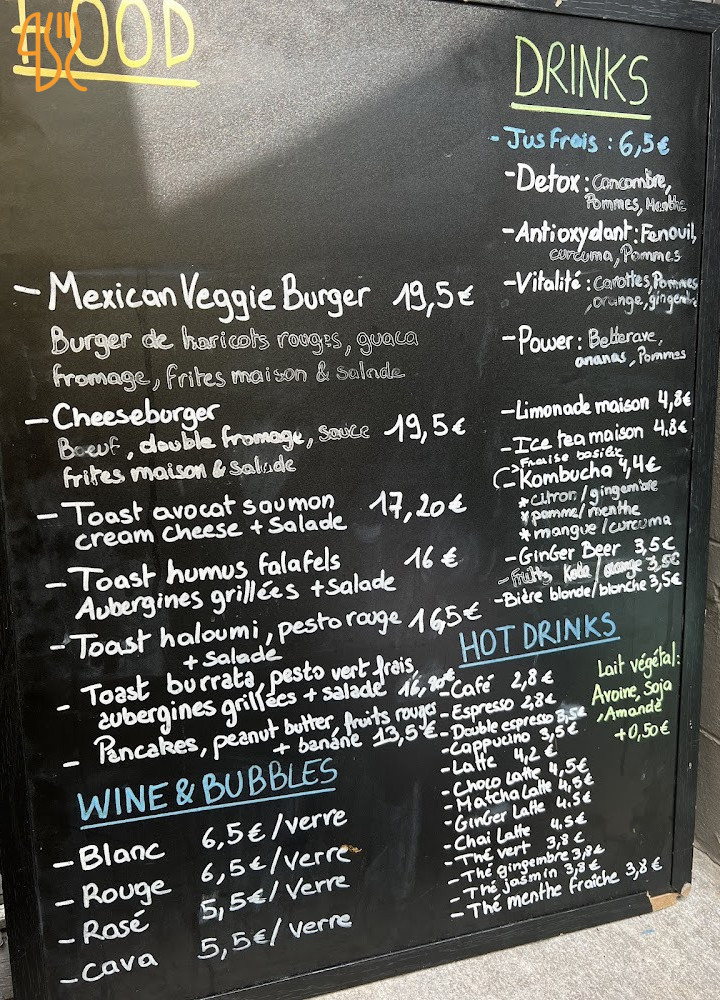 FOOD
- Mexican Veggie Burger 19,5€
Burger de haricots rouges, guaca
fromage, frites maison & salade
- Cheeseburger 19,5€
Bœuf, double fromage, sauce
frites maison & salade
- Toast avocat saumon 17,20€
cream cheese + Salade
- Toast humus falafels 16€
Aubergines grillées + salade
- Toast haloumi, pesto rouge 16,5€
+ Salade
- Toast burrata, pesto vert frais,
aubergines grillées + salade
- Pancakes, peanut butter, fruits rouges
+ banane 13,5€
WINE & BUBBLES
- Blanc 6,5€/verre
- Rouge 6,5€/verre
- Rosé 5,5€/verre
- Cava 5,5€/verre
DRINKS
- Jus Frais : 6,5€
- Detox : Concombre,
Pommes, Menthe
- Antioxydant : Fenouil,
curcuma, Pommes
- Vitalité : Carottes, Pommes
, orange, gingembre
- Power : Betterave,
ananas, Pommes
- Limonade maison 4,8€
- Ice tea maison 4,8€
Fraise basilic
- Kombucha 4,4€
* citron/gingembre
* pomme/menthe
* mangue/curcuma
- GinGer Beer 3,5€
- Fritz Kola / orange 3,5€
- Bière blonde/blanche 3,5€
HOT DRINKS
- Café 2,8€
- Espresso 2,8€
- Double espresso 3,5€
- Cappucino 3,5€
- Latte 4,2€
- Choco Latte 4,5€
- Matcha Latte 4,5€
- GinGer Latte 4.5€
- Chai Latte 4.5€
- Thé vert 3,8€
- Thé gingembre 3,8€
- Thé jasmin 3,8€
- Thé menthe fraîche 3,8€
Lait végétal :
Avoine, Soja
, Amande
+0,50€